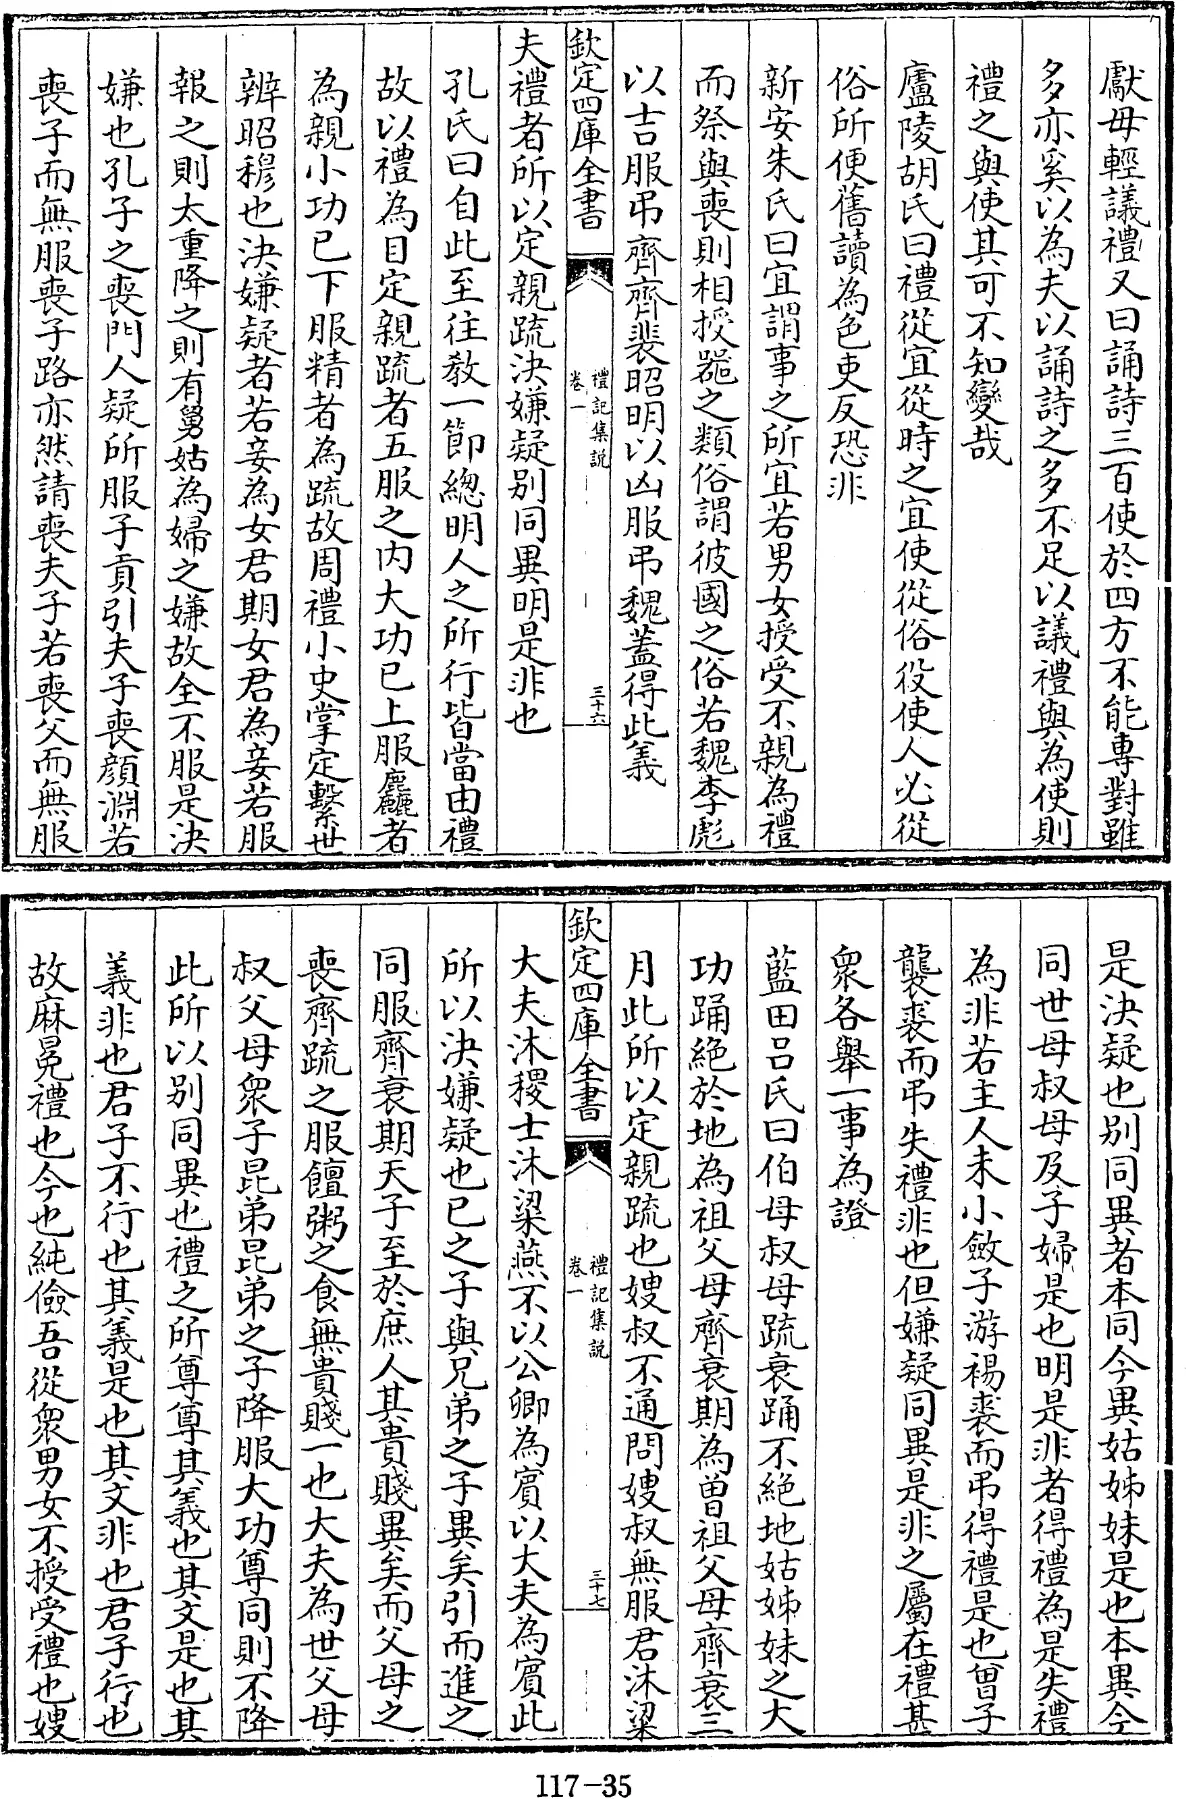 獻毋輕議禮又曰誦詩三百使於四方不能專對雖
多亦奚以為夫以誦詩之多不足以議禮與為使則
禮之與使其可不知變哉
廬陵胡氏曰禮從宜從時之宜使從俗役使人必從
俗所便舊讀為色吏反恐非
新安朱氏曰宜謂事之所宜若男女授受不親為禮
而祭與喪則相授器之類俗謂彼國之俗若魏李彪
以吉服弔齊齊裴昭明以凶服弔魏蓋得此義
欽定四庫全書
禮記集說
卷一
三十六
夫禮者所以定親疏決嫌疑別同異明是非也
孔氏曰自此至往教一節總明人之所行皆當由禮
故以禮為目定親疏者五服之內大功已上服麤者
為親小功已下服精者為疏故周禮小史掌定繫世
辨昭穆也決嫌疑者若妾為女君期女君為妾若服
報之則太重降之則有舅姑為婦之嫌故全不服是決
嫌也孔子之喪門人疑所服子貢引夫子喪顔淵若
喪子而無服喪子路亦然請喪夫子若喪父而無服
是決疑也別同異者本同今異姑姊妹是也本異今
同世母叔母及子婦是也明是非者得禮為是失禮
為非若主人未小斂子游裼裘而弔得禮是也曾子
襲裘而弔失禮非也但嫌疑同異是非之屬在禮甚
衆各舉一事為證
藍田呂氏曰伯母叔母疏衰踊不絕地姑姊妹之大
功踊絕於地為祖父母齊衰期為曾祖父母齊衰三
月此所以定親疏也嫂叔不通問嫂叔無服君沐粱
欽定四庫全書
禮記集說
卷一
三十七
大夫沐稷士沐粱燕不以公卿為賓以大夫為賓此
所以決嫌疑也已之子與兄弟之子異矣引而進之
同服齊衰期天子至於庶人其貴賤異矣而父母之
喪齊疏之服饘粥之食無貴賤一也大夫為世父母
叔父母衆子昆弟昆弟之子降服大功尊同則不降
此所以別同異也禮之所尊尊其義也其文是也其
義非也君子不行也其義是也其文非也君子行也
故麻冕禮也今也純儉吾從衆男女不授受禮也嫂
117-35